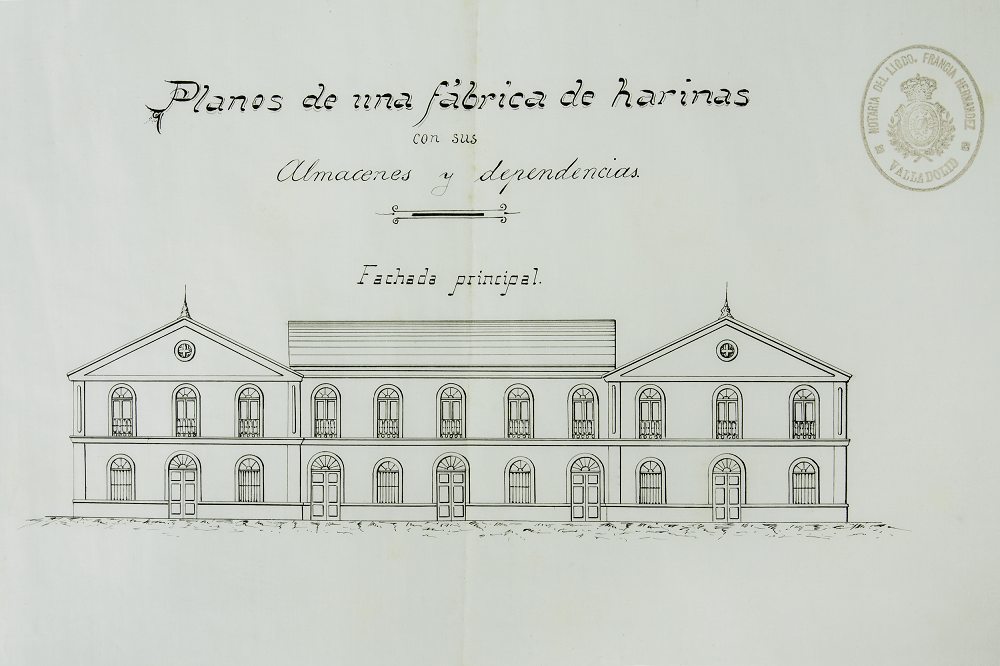 Planos de una fábrica de harinas
con sus
Almacenes y dependencias.
Fachada principal.
NOTARIA DEL LICDO. FRANCIA HERNANDEZ
VALLADOLID